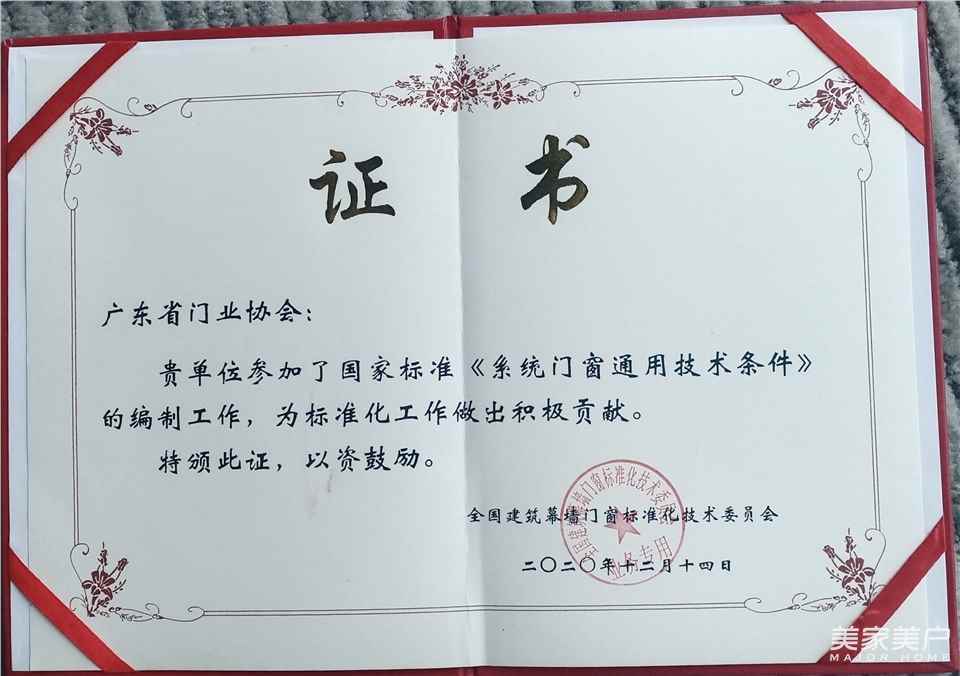 证 书
广东省门业协会：
贵单位参加了国家标准《系统门窗通用技术条件》
的编制工作，为标准化工作做出积极贡献。
特颁此证，以资鼓励。
全国建筑幕墙门窗标准化技术委员会
全国建筑幕墙门窗标准化技术委员会
业务专用
二〇二〇年十二月十四日
美家美户
MAJOR HOME